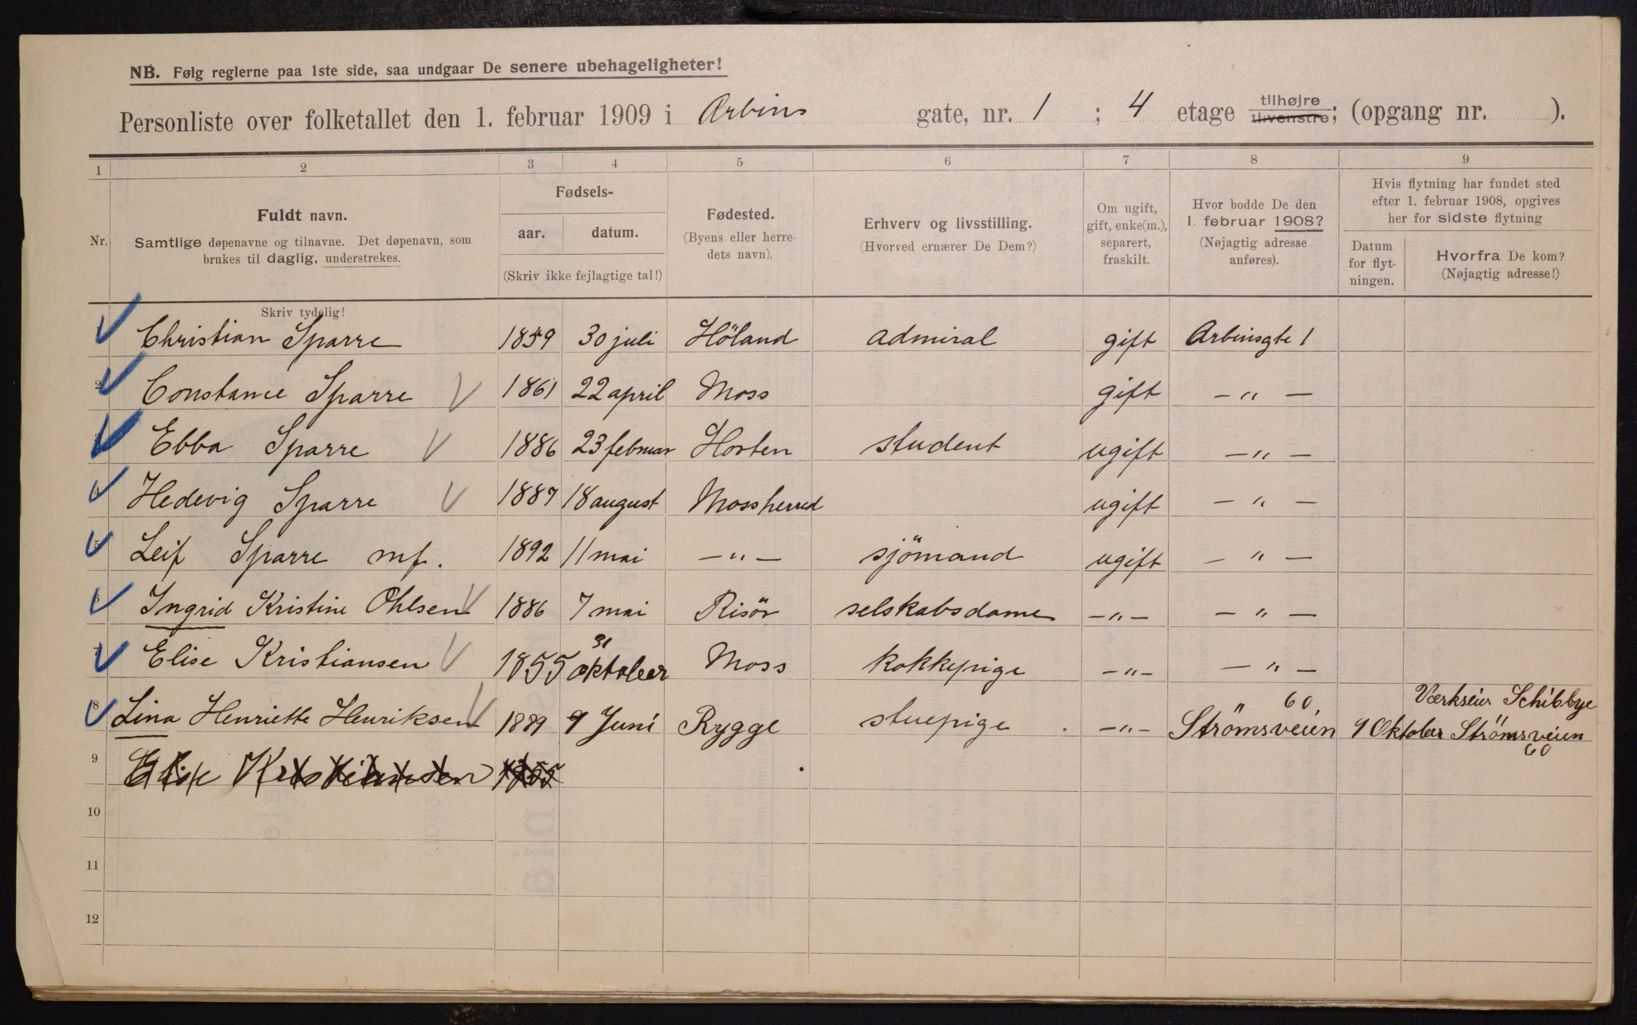 NB. Følg reglerne paa 1ste side, saa undgaar De senere ubehageligheter!
Personliste over folketallet den 1. februar 1909 i Arbins gate, nr. 1 ; 4 etage tilhøjre tilvenstre; (opgang nr. ).
1 2 3 4 5 6 7 8 9
Nr.
Fuldt navn.
Samtlige døpenavne og tilnavne. Det døpenavn, som
brukes til daglig, understrekes.
Fødsels-
aar. datum.
(Skriv ikke fejlagtige tal!)
Fødested.
(Byens eller herre-
dets navn).
Erhverv og livsstilling.
(Hvorved ernærer De Dem?)
Om ugift,
gift, enke(m.),
separert,
fraskilt.
Hvor bodde De den
1. februar 1908?
(Nøjagtig adresse
anføres).
Hvis flytning har fundet sted
efter 1. februar 1908, opgives
her for sidste flytning
Datum
for flyt-
ningen.
Hvorfra De kom?
(Nøjagtig adresse!)
Skriv tydelig!
Christian Sparre 1859 30 juli Höland admiral gift Arbinsgte 1
2 Constance Sparre 1861 22 april Moss gift — „ —
3 Ebba Sparre 1886 23 februar Horten student ugift — „ —
4 Hedevig Sparre 1887 18 august Mossherred ugift — „ —
5 Leif Sparre mf. 1892 11 mai — „ — sjömand ugift — „ —
6 Ingrid Kristine Ohlsen 1886 7 mai Risör selskabsdame — „ — — „ —
7 Elise Kristiansen 1855 31 oktober Moss kokkepige — „ — — „ —
8 Lina Henriette Henriksen 1889 9 Juni Rygge stuepige — „ — Strömsveien 60 9 Oktober Værkseier Schibbye
Strömsveien
60
9 Elise Kristiansen 1855
10
11
12